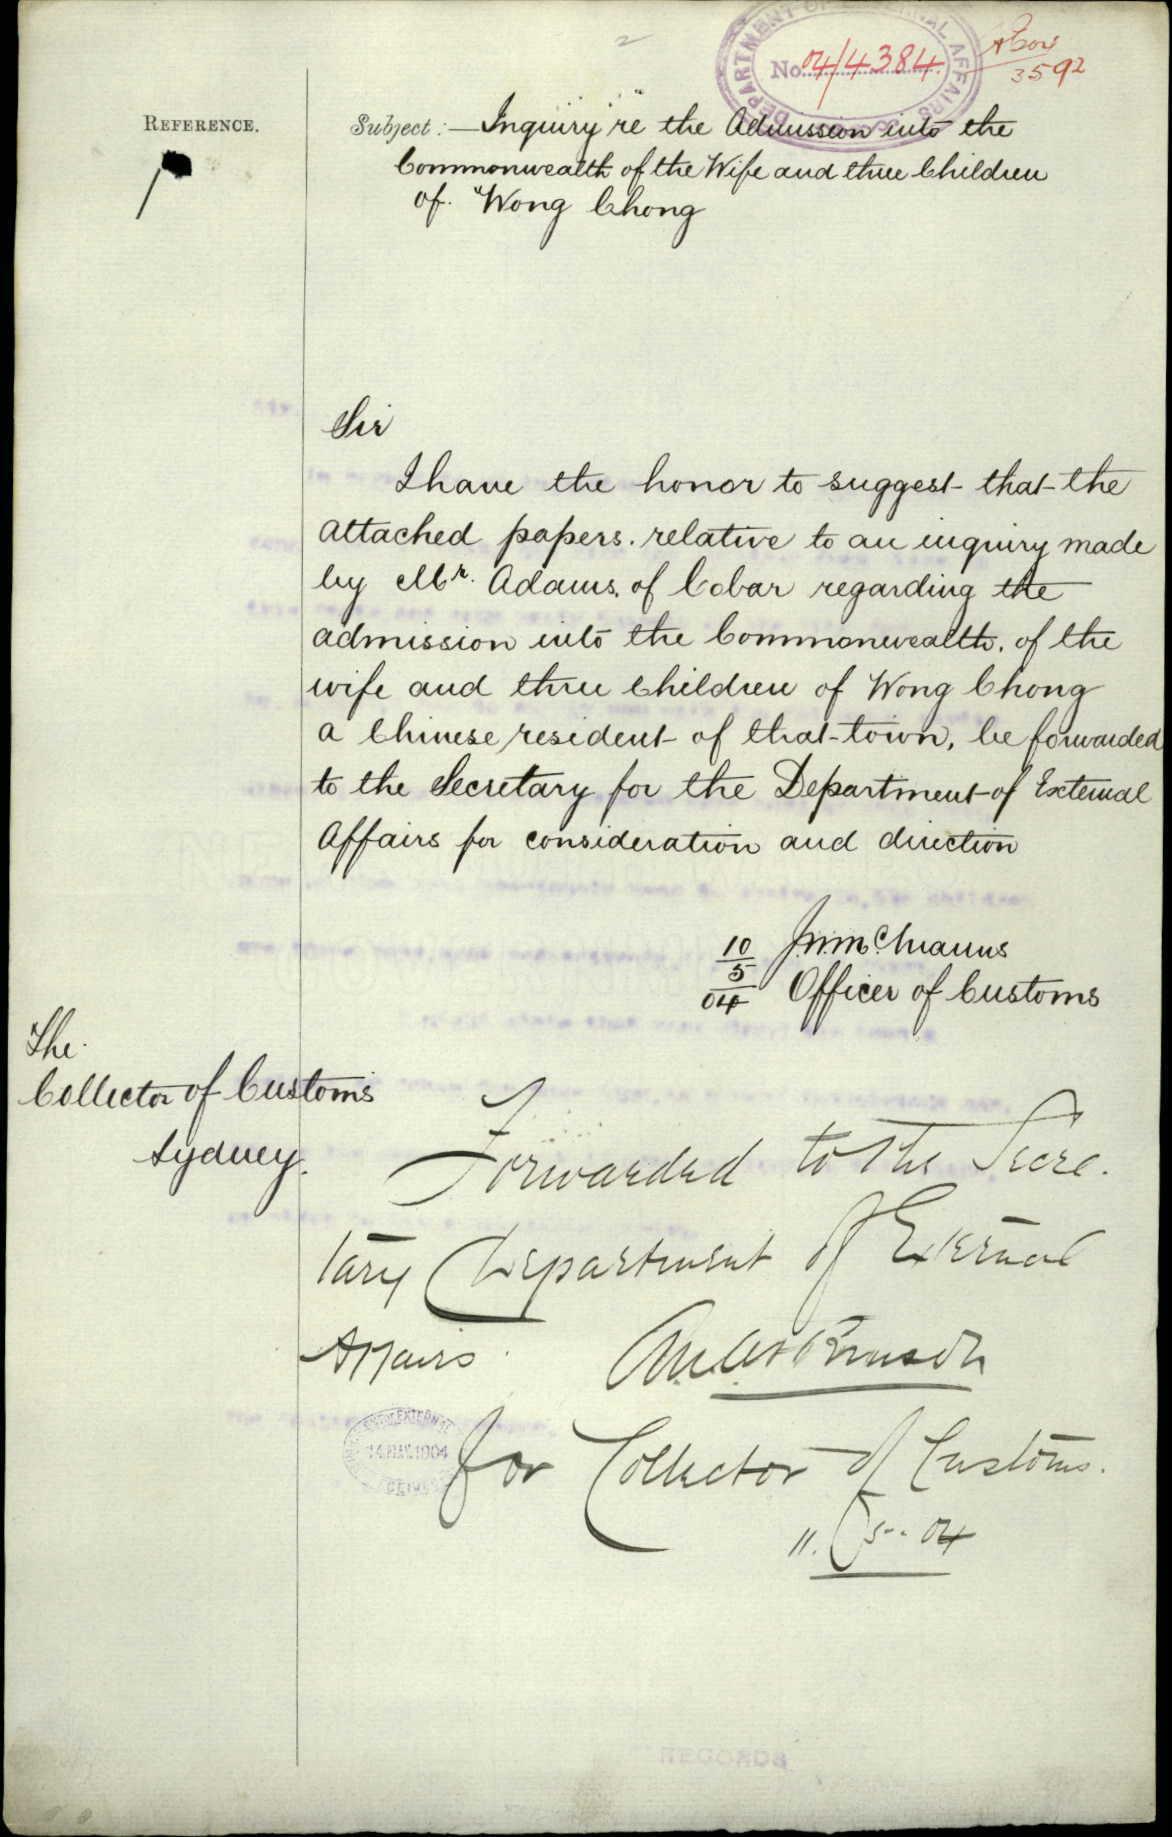 2
DEPARTMENT OF EXTERNAL AFFAIRS
No. 04/4384
3592
REFERENCE.
Subject:— Inquiry "re the Admission into the
Commonwealth of the Wife and three Children
of "Wong Chong
Sir
I have the honor to suggest that the
attached papers. relative to an inquiry made
by Mr. Adams. of Cobar regarding the
admission into the Commonwealth. of the
wife and three Children of Wong Chong
a Chinese resident of that town, be forwarded
to the Secretary for the Department of External
Affairs for consideration and direction
10
5
04
Officer of Customs
The
Collector of Customs
Sydney.
Forwarded to the Secre.
tary Department of External
Affairs.
14 MAY.1904
for Collector of Customs.
11. 5. 04
RECORDS